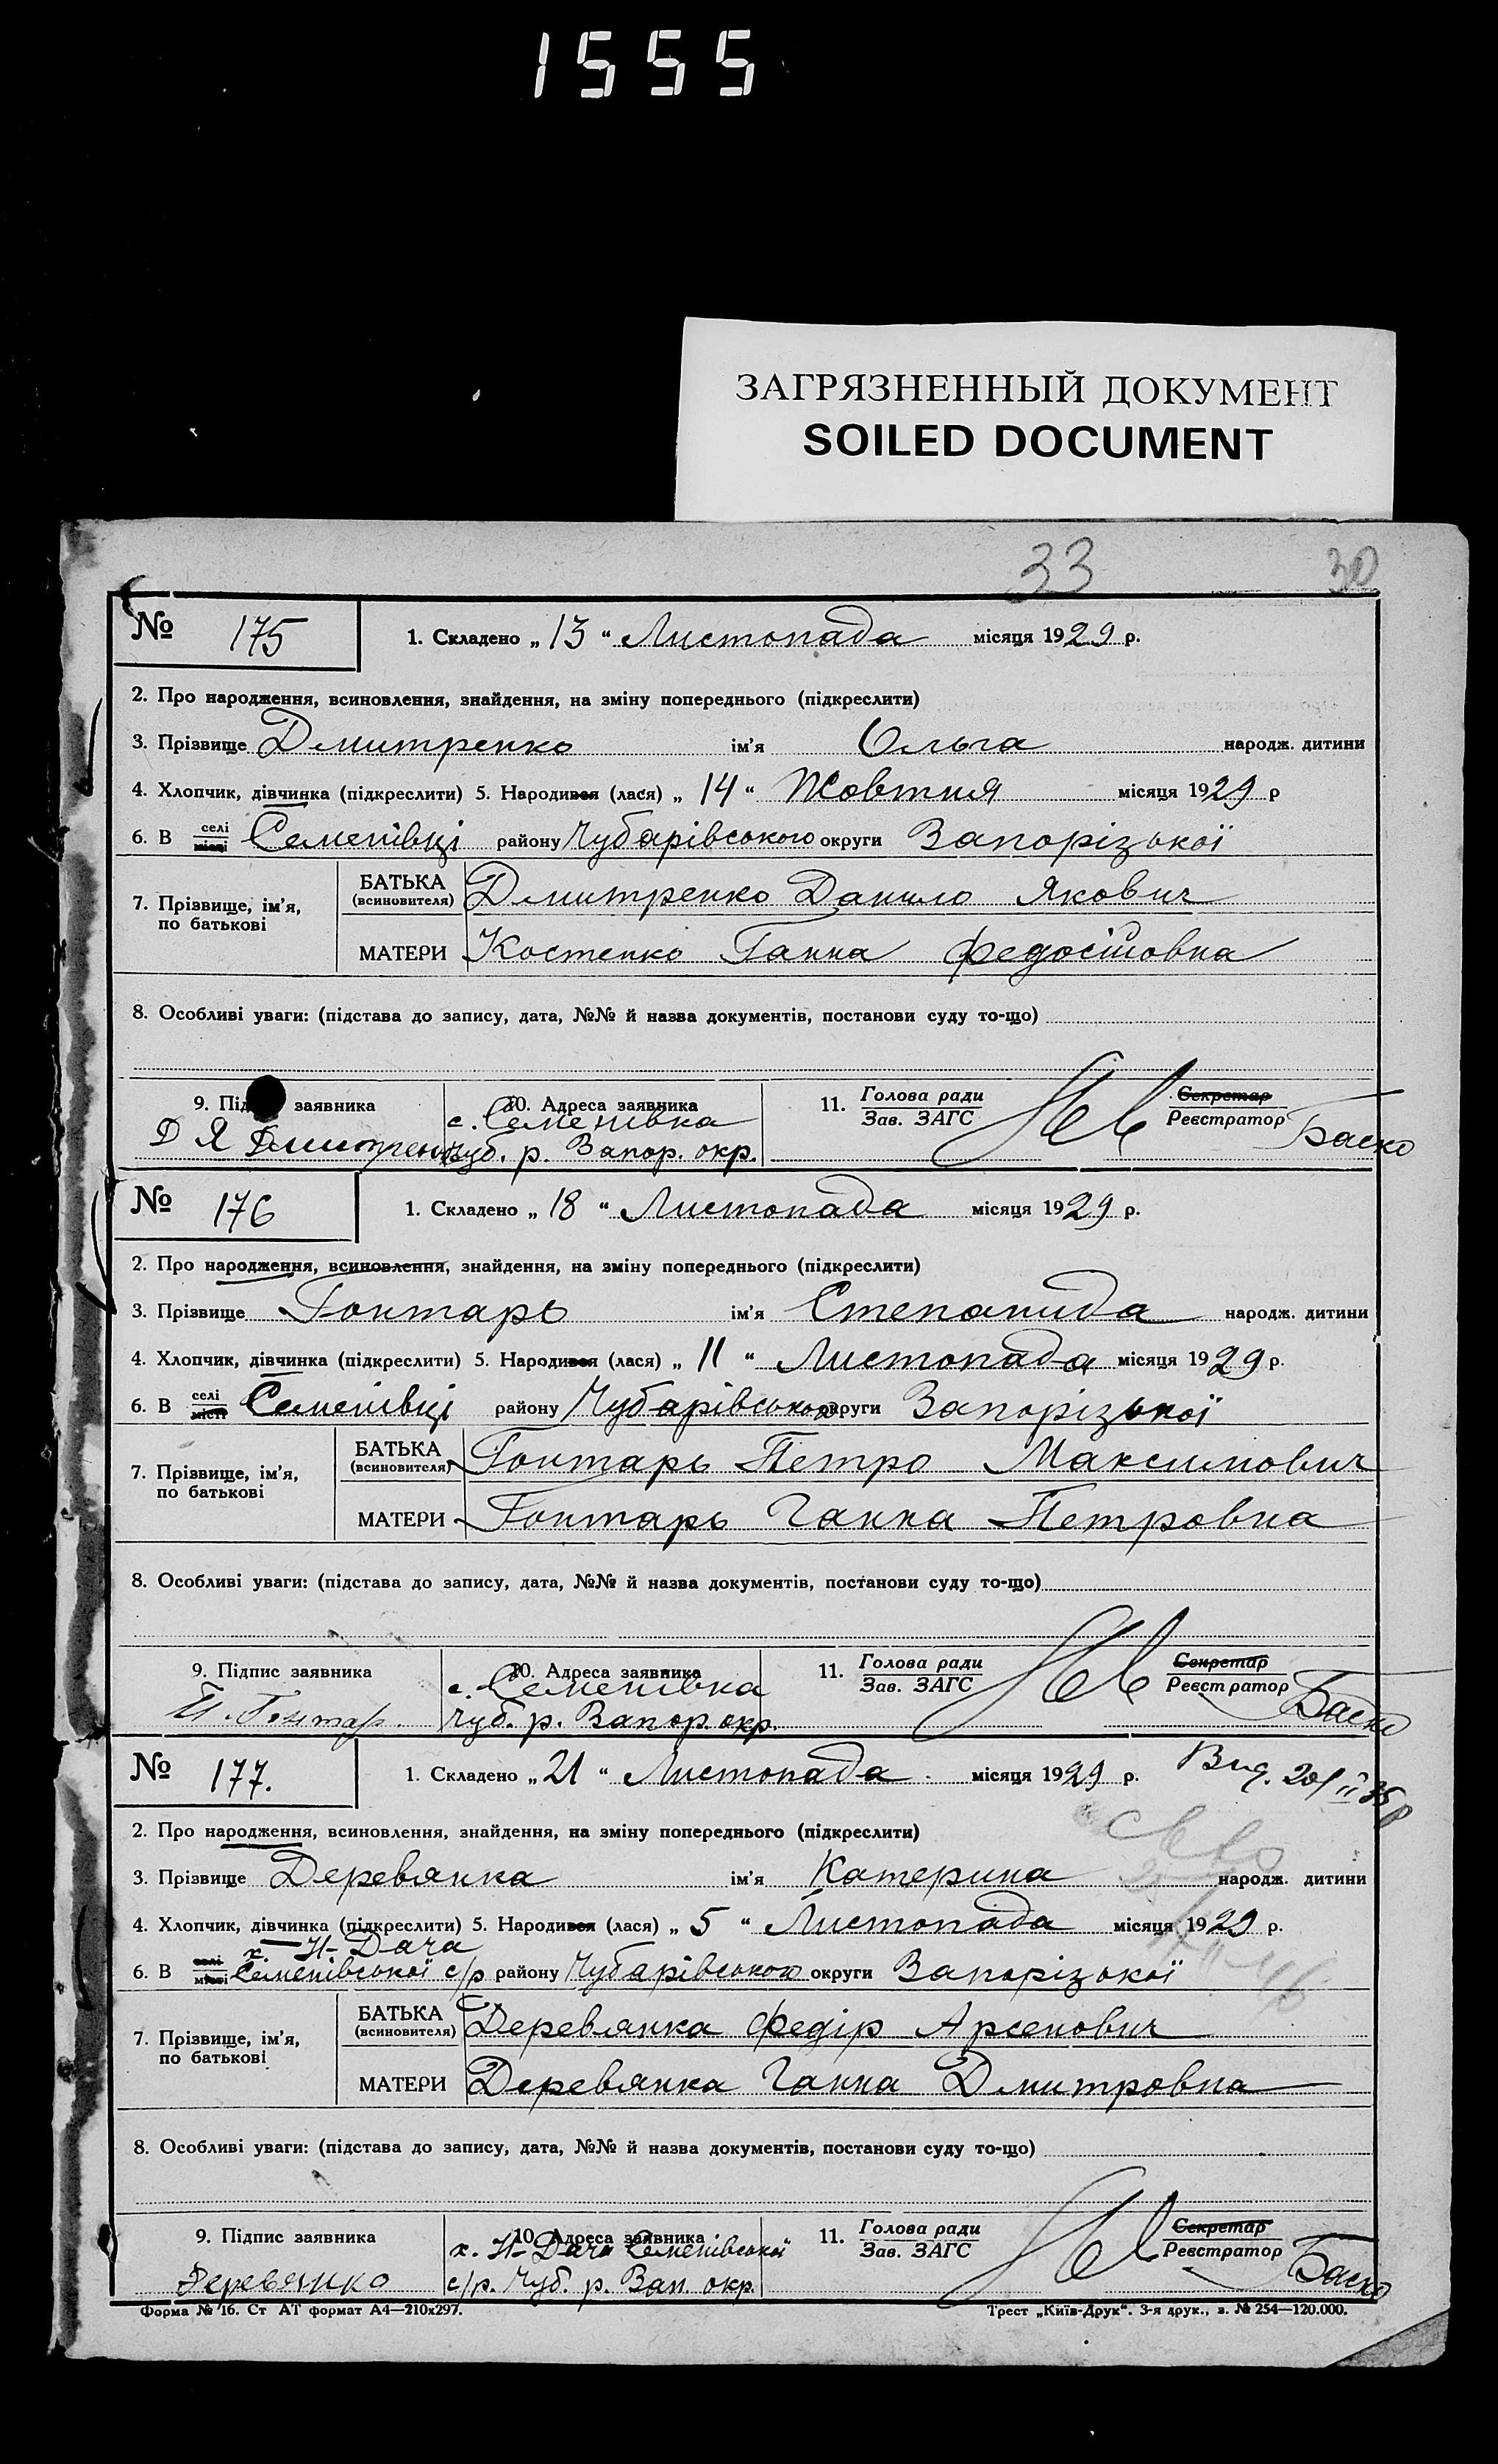 1555
ЗАГРЯЗНЕННЫЙ ДОКУМЕНТ
SOILED DOCUMENT
33 30
№ 175 1. Складено „ 13 “ Листопада місяця 1929 р.
2. Про народження, всиновлення, знайдення, на зміну попереднього (підкреслити)
3. Прізвище Дмитренко ім’я Ольга народж. дитини
4. Хлопчик, дівчинка (підкреслити) 5. Народився (лася) „ 14 “ Жовтня місяця 1929 р
6. В селі місті Семенівці району Чубарівського округи Запорізької
7. Прізвище, ім’я, по батькові
БАТЬКА (всиновителя) Дмитренко Данило Якович
МАТЕРИ Костенко Ганна Федосіиовна
8. Особливі уваги: (підстава до запису, дата, №№ й назва документів, постанови суду то-що)
9. Під заявника 10. Адреса заявника 11. Голова ради Зав. ЗАГС Секретар Реєстратор Баско
Д Я Дмитренко
с. Семенівка
Чуб. р. Запор. окр.
№ 176 1. Складено „ 18 “ Листопада місяця 1929 р.
2. Про народження, всиновлення, знайдення, на зміну попереднього (підкреслити)
3. Прізвище Гонтарь ім’я Степанида народж. дитини
4. Хлопчик, дівчинка (підкреслити) 5. Народився (лася) „ 11 “ Листопада місяця 1929 р.
6. В селі місті Семенівці району Чубарівського округи Запорізької
7. Прізвище, ім’я, по батькові
БАТЬКА (всиновителя) Гонтарь Петро Максимович
МАТЕРИ Гонтарь Ганна Петровна
8. Особливі уваги: (підстава до запису, дата, №№ й назва документів, постанови суду то-що)
9. Підпис заявника 10. Адреса заявника 11. Голова ради Зав. ЗАГС Секретар Реєстратор Баско
П. Гонтар.
с. Семенівка
Чуб. р. Запор. окр.
№ 177. 1. Складено „ 21 “ Листопада місяця 1929 р. Вид. 20/II 35 р
2. Про народження, всиновлення, знайдення, на зміну попереднього (підкреслити)
3. Прізвище Деревянка ім’я Катерина народж. дитини
4. Хлопчик, дівчинка (підкреслити) 5. Народився (лася) „ 5 “ Листопада місяця 1929 р.
х. Н-Дача
6. В селі місті Семенівської с/р району Чубарівського округи Запорізької
7. Прізвище, ім’я, по батькові
БАТЬКА (всиновителя) Деревянка Федір Арсенович
МАТЕРИ Деревянка Ганна Дмитровна
8. Особливі уваги: (підстава до запису, дата, №№ й назва документів, постанови суду то-що)
9. Підпис заявника 10. Адреса заявника 11. Голова ради Зав. ЗАГС Секретар Реєстратор Баско
Деревянко
х. Н-Дача Семенівської
с/р. Чуб. р. Зап. окр.
Форма № 16. Ст АТ формат А4—210х297. Трест „Київ-Друк“. 3-я друк., з. № 254—120.000.